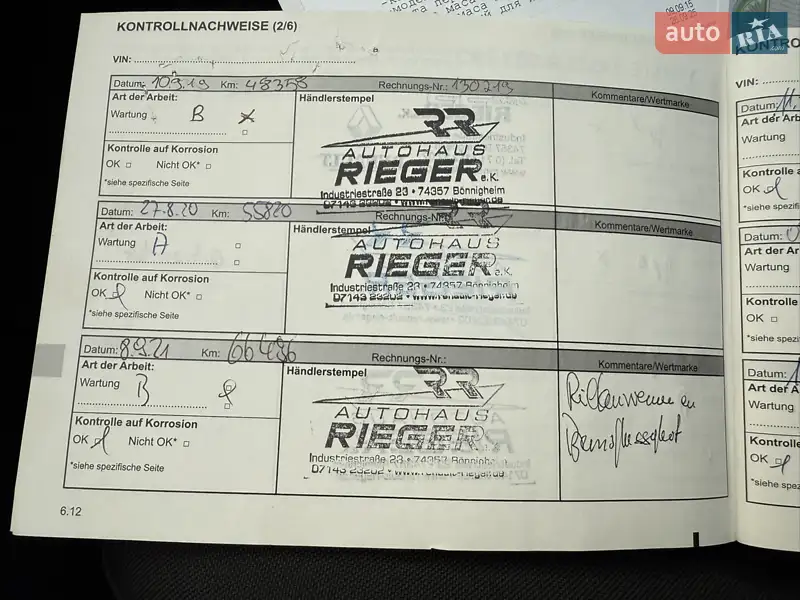 KONTROLLNACHWEISE (2/6)
VIN:
Datum: 10.9.19 Km: 48358 Rechnungs-Nr.: 130219
Art der Arbeit:
Wartung B
Kontrolle auf Korrosion
OK Nicht OK*
*siehe spezifische Seite
Händlerstempel
RR
AUTOHAUS
RIEGER e.K.
Industriestraße 23 • 74357 Bönnigheim
07143 23202 • www.renault-rieger.de
Kommentare/Wertmarke
Datum: 27.8.20 Km: 55820 Rechnungs-Nr.:
Art der Arbeit:
Wartung A
Kontrolle auf Korrosion
OK Nicht OK*
*siehe spezifische Seite
Händlerstempel
RR
AUTOHAUS
RIEGER e.K.
Industriestraße 23 • 74357 Bönnigheim
07143 23202 • www.renault-rieger.de
Kommentare/Wertmarke
Datum: 8.9.21 Km: 66486 Rechnungs-Nr.:
Art der Arbeit:
Wartung B
Kontrolle auf Korrosion
OK Nicht OK*
*siehe spezifische Seite
Händlerstempel
RR
AUTOHAUS
RIEGER
Industriestraße 23 • 74357 Bönnigheim
07143 23202 • www.renault-rieger.de
Kommentare/Wertmarke
6.12
VIN:
Datum: 11.
Art der Arb
Wartung
Kontrolle a
OK
*siehe spezifis
Datum: 0
Art der Ar
Wartung
Kontrolle
OK
*siehe spez
Datum: 1
Art der A
Wartung
Kontroll
OK
*siehe spe
09.09.15
auto RIA
.com